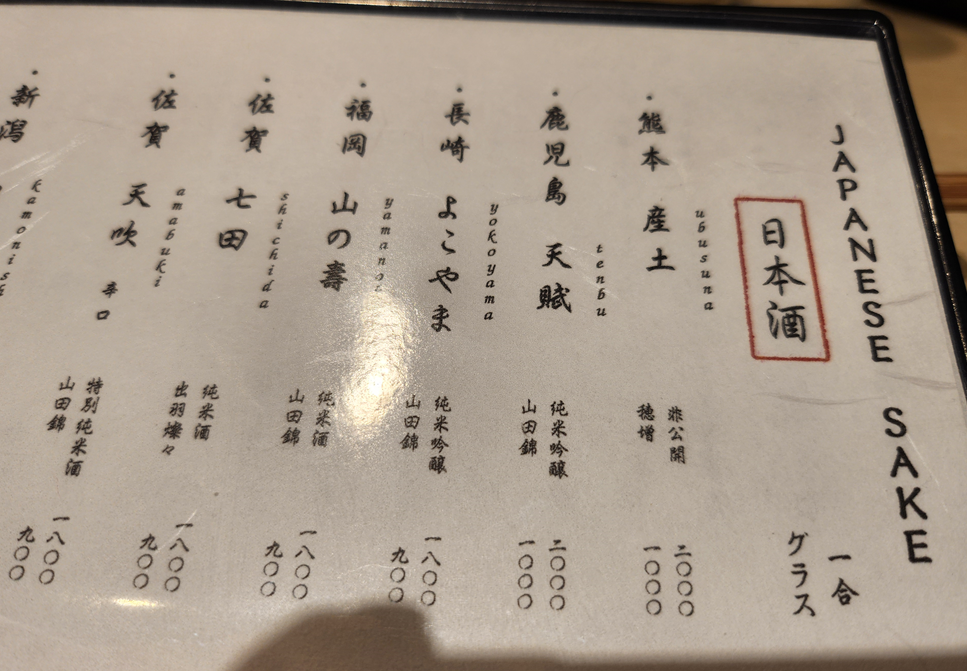 JAPANESE SAKE
日本酒
一合
グラス
ubusuna
・熊本 産土
非公開
穂増
二〇〇〇
一〇〇〇
tenbu
・鹿児島 天賦
純米吟醸
山田錦
二〇〇〇
一〇〇〇
yokoyama
・長崎 よこやま
純米吟醸
山田錦
一八〇〇
九〇〇
・福岡 山の壽
純米酒
山田錦
一八〇〇
九〇〇
shichida
・佐賀 七田
純米酒
出羽燦々
一八〇〇
九〇〇
amabuki
・佐賀 天吹 辛口
特別純米酒
山田錦
一八〇〇
九〇〇
・新潟